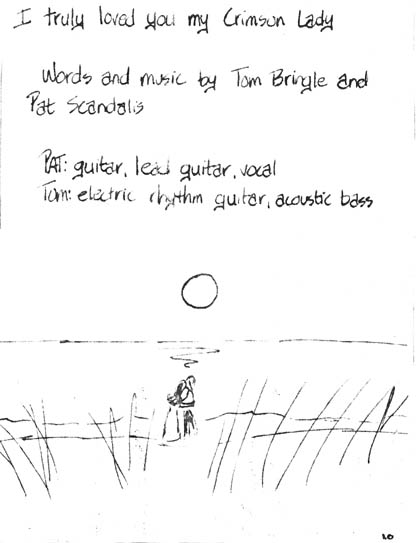 I truly loved you my Crimson Lady
Words and music by Tom Bringle and
Pat Scandalis
PAT: guitar, lead guitar, vocal
Tom: electric rhythm guitar, acoustic bass
20